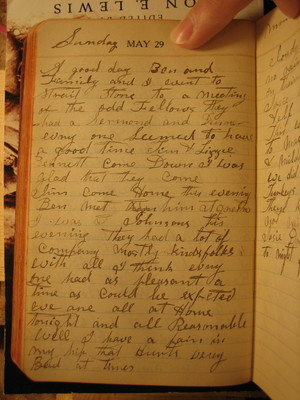 ON E. LEWIS
EDITED
Sunday MAY 29
A good day Ben and
Family and I went to
Strait Stone to a meeting
of the odd Fellows they
had a Sermond and Dinner
evry one Seemed to have
a good time & Lizzie
Bennett Come Down I was
Glad that they Come
Jim Come Home this evening
Ben met him at
I was at Johnsons this
evening They had a lot of
Company mostly kinsfolks
with all I think evry
one had as pleasant a
time as Could be expected
we are all at Home
tonight and all Reasonable
well I have a pain in
my hip that Hurts very
Bad at times